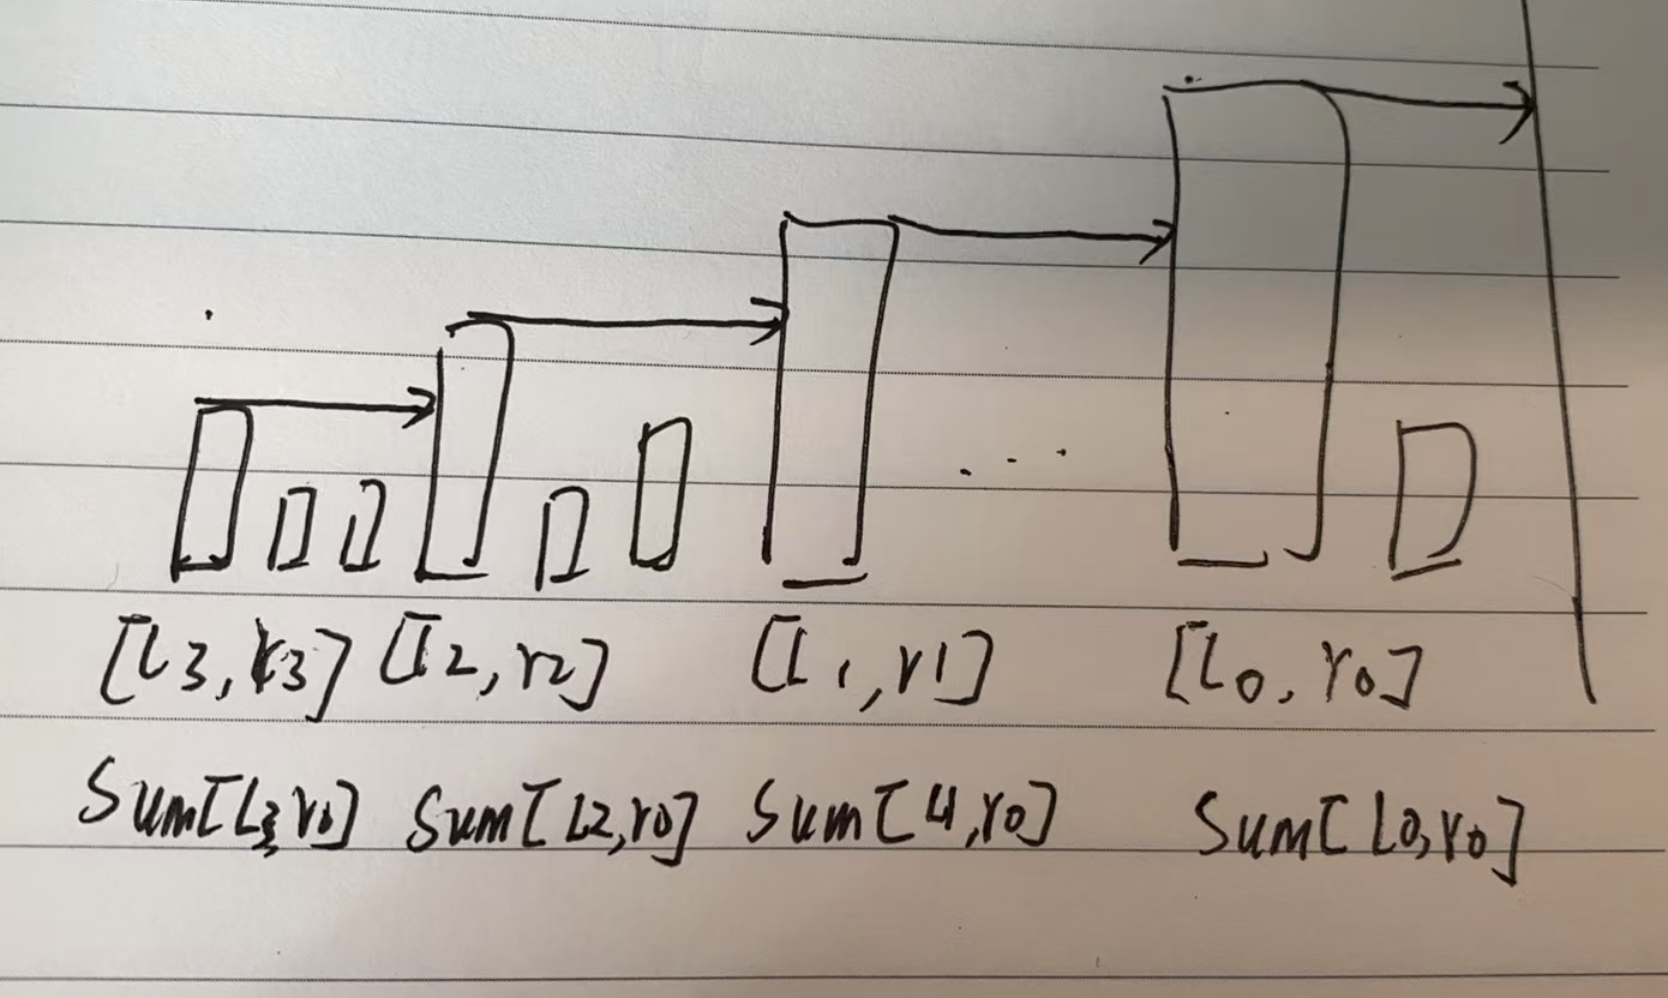 [L3, r3] [L2, r2] [L1, r1] [L0, r0]
Sum[L3, r0] Sum[L2, r0] Sum[L1, r0] Sum[L0, r0]